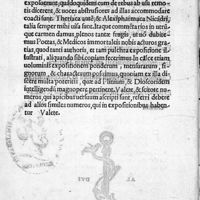 exposuerunt, quàsdoquidem eum de rebus ab usu remo-
tis dicerent, & voces abstrusiores ad illas accommodare
coacti sunt. Theriaca unã, & Alexipharmaca Nicãdri,
talia semper mihi visa sunt. Ita que commẽtarios in utrũ-
que carmen damus, plenos tantæ frugis, ut nõ dubite-
mus Poetas, & Medicos immortales nobis acturos gra-
tias, quod tanti authoris, et tam pulchra expositione il-
lustrati, aliquando sibi copiam fecerimus. In calce etiam
voluminis expositionem ponderum, mensurarum, si-
gnorum, & characterum posuimus, quoniam ex illa di-
scere multa poteritis, quæ ad Plinium, & Dioscoridem
intelligendũ magnopere pertinent. Valete, & scitote nu-
meros, qui apicibus versuum ascripti sunt, referri debere
ad alios similes numeros, qui in expositionibus haben-
tur Valete.
AL DVS